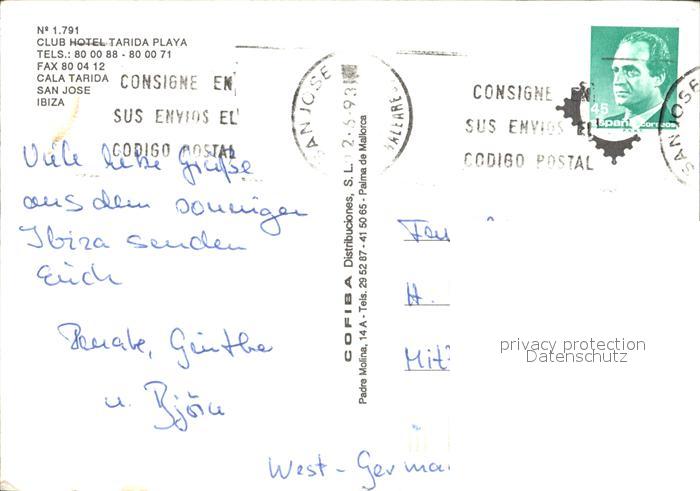 Nº 1.791
CLUB HOTEL TARIDA PLAYA
TELS.: 80 00 88 - 80 00 71
FAX 80 04 12
CALA TARIDA
SAN JOSE
IBIZA
CONSIGNE EN
SUS ENVIOS EL
CODIGO POSTAL
SAN JOSE
BALEARES
CONSIGNE EN
SUS ENVIOS EL
CODIGO POSTAL
SAN JOSE
45
España correos
Viele liebe Grüße
aus dem sonnigen
Ibiza senden
Euch
Renate, Günther
u. Björn
COFIBA Distribuciones, S.L.
Padre Molina, 14 A - Tels. 29 52 87 - 41 50 65 - Palma de Mallorca
H.
West-Germa
privacy protection
Datenschutz